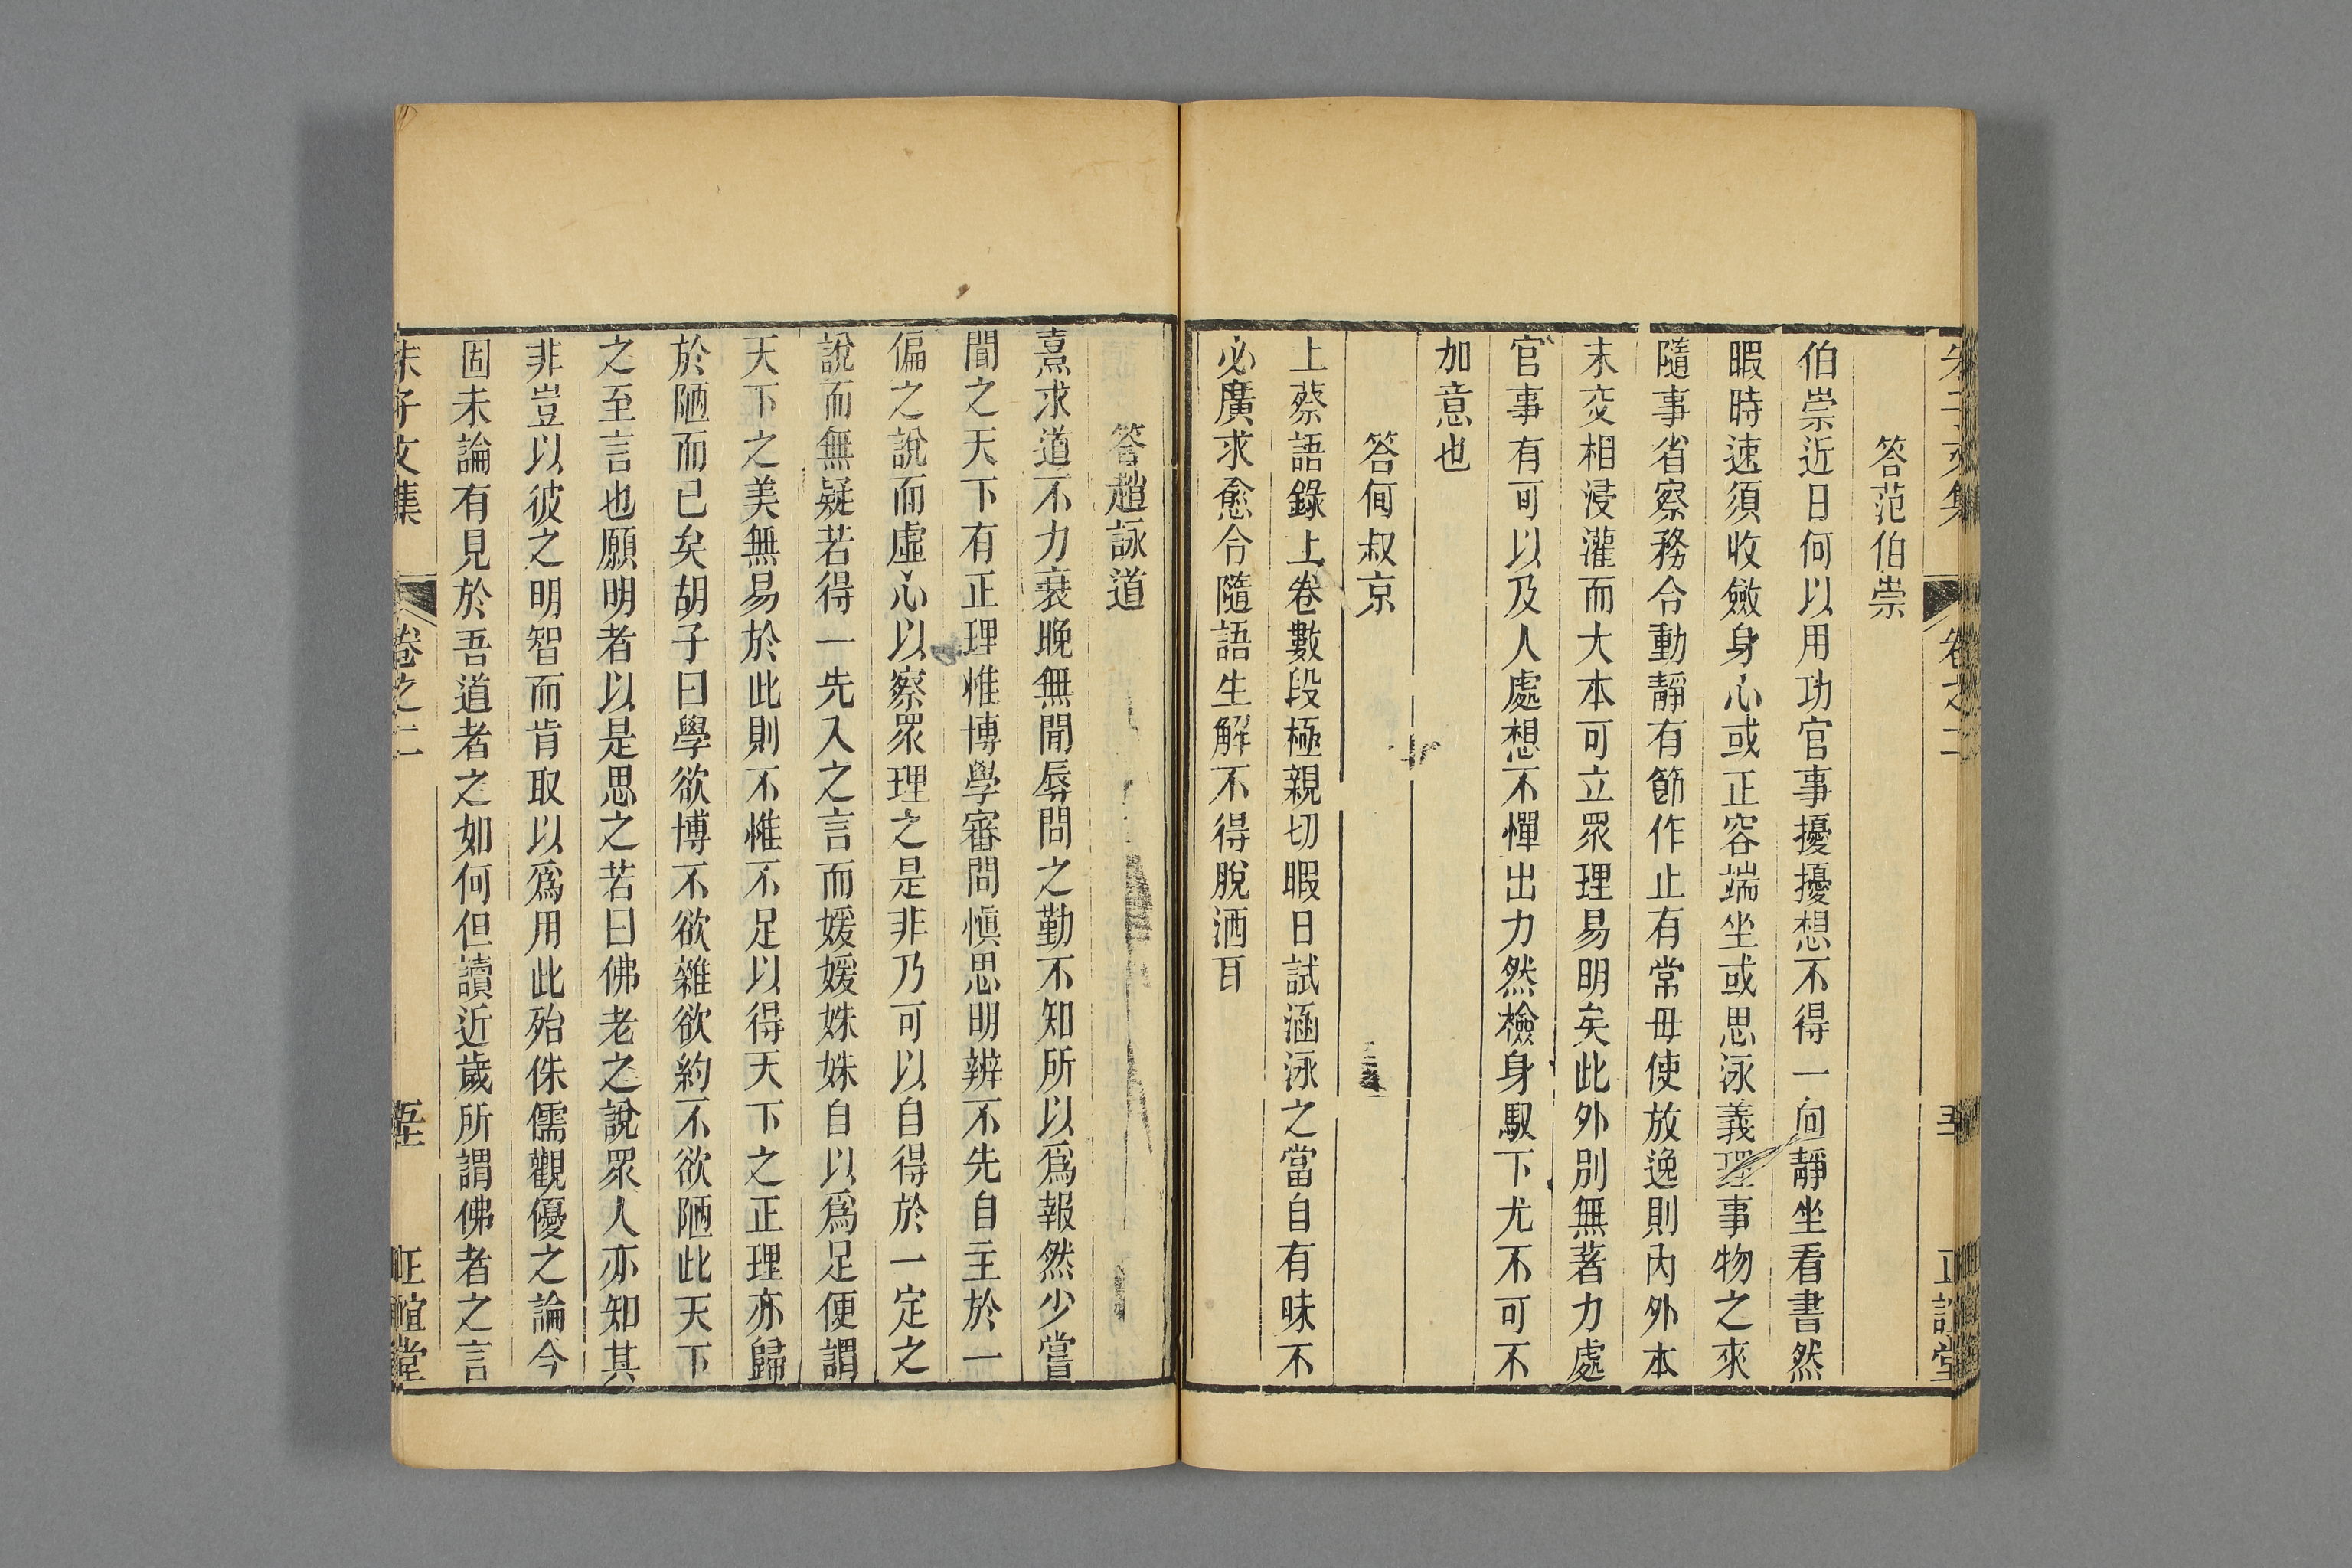 答范伯崇
伯崇近日何以用功官事擾擾想不得一向靜坐看書然
暇時速須收斂身心或正容端坐或思泳義理事物之來
隨事省察務令動靜有節作止有常毋使放逸則內外本
末交相浸灌而大本可立眾理易明矣此外別無著力處
官事有可以及人處想不憚出力然檢身馭下尤不可不
加意也
答何叔京
上蔡語錄上卷數段極親切暇日試涵泳之當自有味不
必廣求愈令隨語生解不得脫洒耳
答趙詠道
熹求道不力衰晚無聞辱問之勤不知所以爲報然少嘗
聞之天下有正理惟博學審問慎思明辨不先自主於一
偏之說而虛心以察眾理之是非乃可以自得於一定之
說而無疑若得一先入之言而媛媛姝姝自以爲足便謂
天下之美無易於此則不惟不足以得天下之正理亦歸
於陋而已矣胡子曰學欲博不欲雜欲約不欲陋此天下
之至言也願明者以是思之若曰佛老之說眾人亦知其
非豈以彼之明智而肯取以爲用此殆侏儒觀優之論今
固未論有見於吾道者之如何但讀近歲所謂佛者之言
朱子文集 卷之二 正誼堂